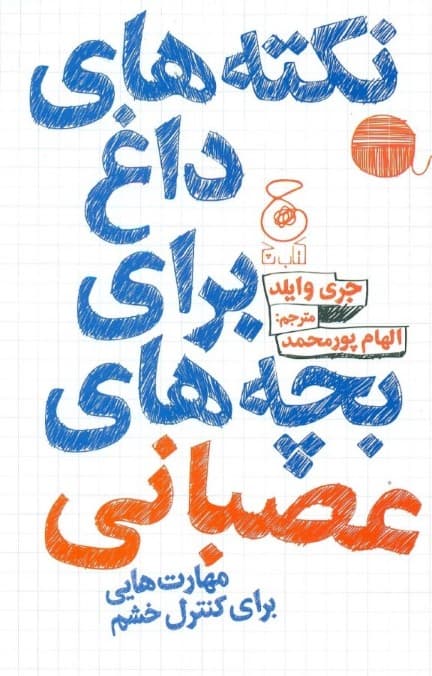 نکته‌های
داغ
برای
بچه‌های
عصبانی
مهارت‌هایی
برای کنترل خشم
کتاب چ
جری وایلد
مترجم:
الهام پورمحمد